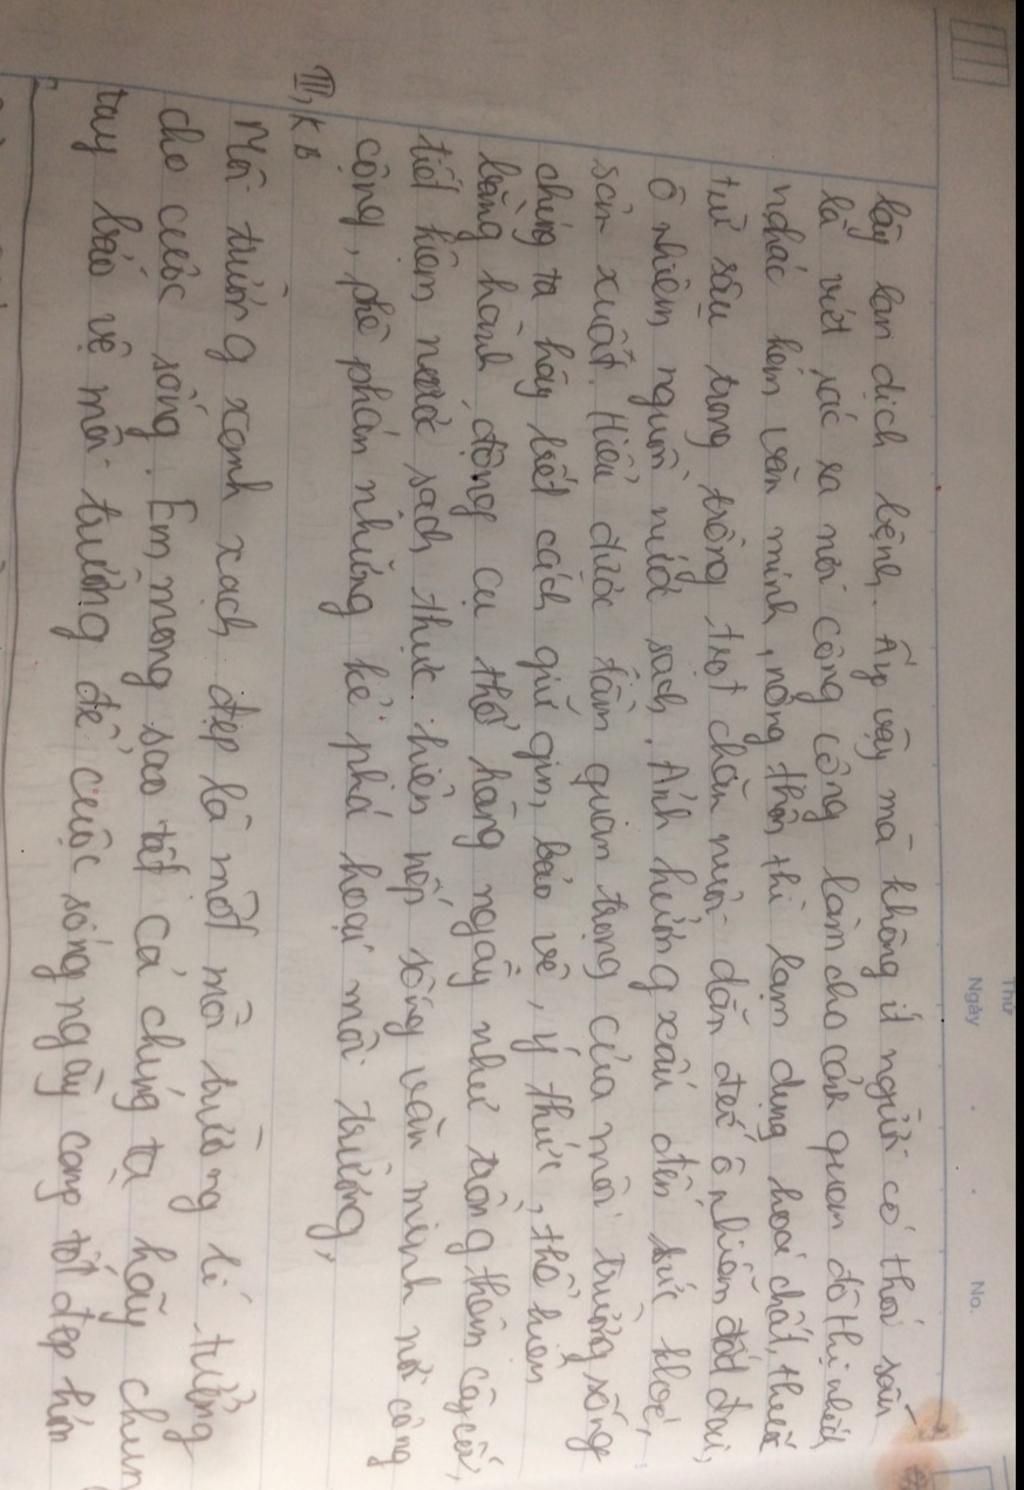 Thứ
Ngày . . No.
lây lan dịch bệnh. Ấy vậy mà không ít người có thói xấu
là vứt rác ra nơi công cộng làm cho cảnh quan đô thị nhếch
nghác kém văn minh, nông thôn thì lạm dụng hoá chất, thuốc
trừ sâu trong trồng trọt chăn nuôi dẫn đến ô nhiễm đất đai,
ô nhiễm nguồn nước sạch. Ảnh hưởng xấu đến sức khoẻ,
sản xuất. Hiểu được tầm quan trọng của môi trường sống
chúng ta hãy biết cách giữ gìn, bảo vệ, ý thức, thể hiện
bằng hành động cụ thể hàng ngày như trồng thêm cây cối,
tiết kiệm nước sạch thực hiện nếp sống văn minh nơi công
cộng, phê phán những kẻ phá hoại môi trường,
III, KB
Môi trường xanh xạch đẹp là một môi trường lí tưởng
cho cuộc sống. Em mong sao tất cả chúng ta hãy chung
tay bảo vệ môi trường để cuộc sống ngày càng tốt đẹp hơn